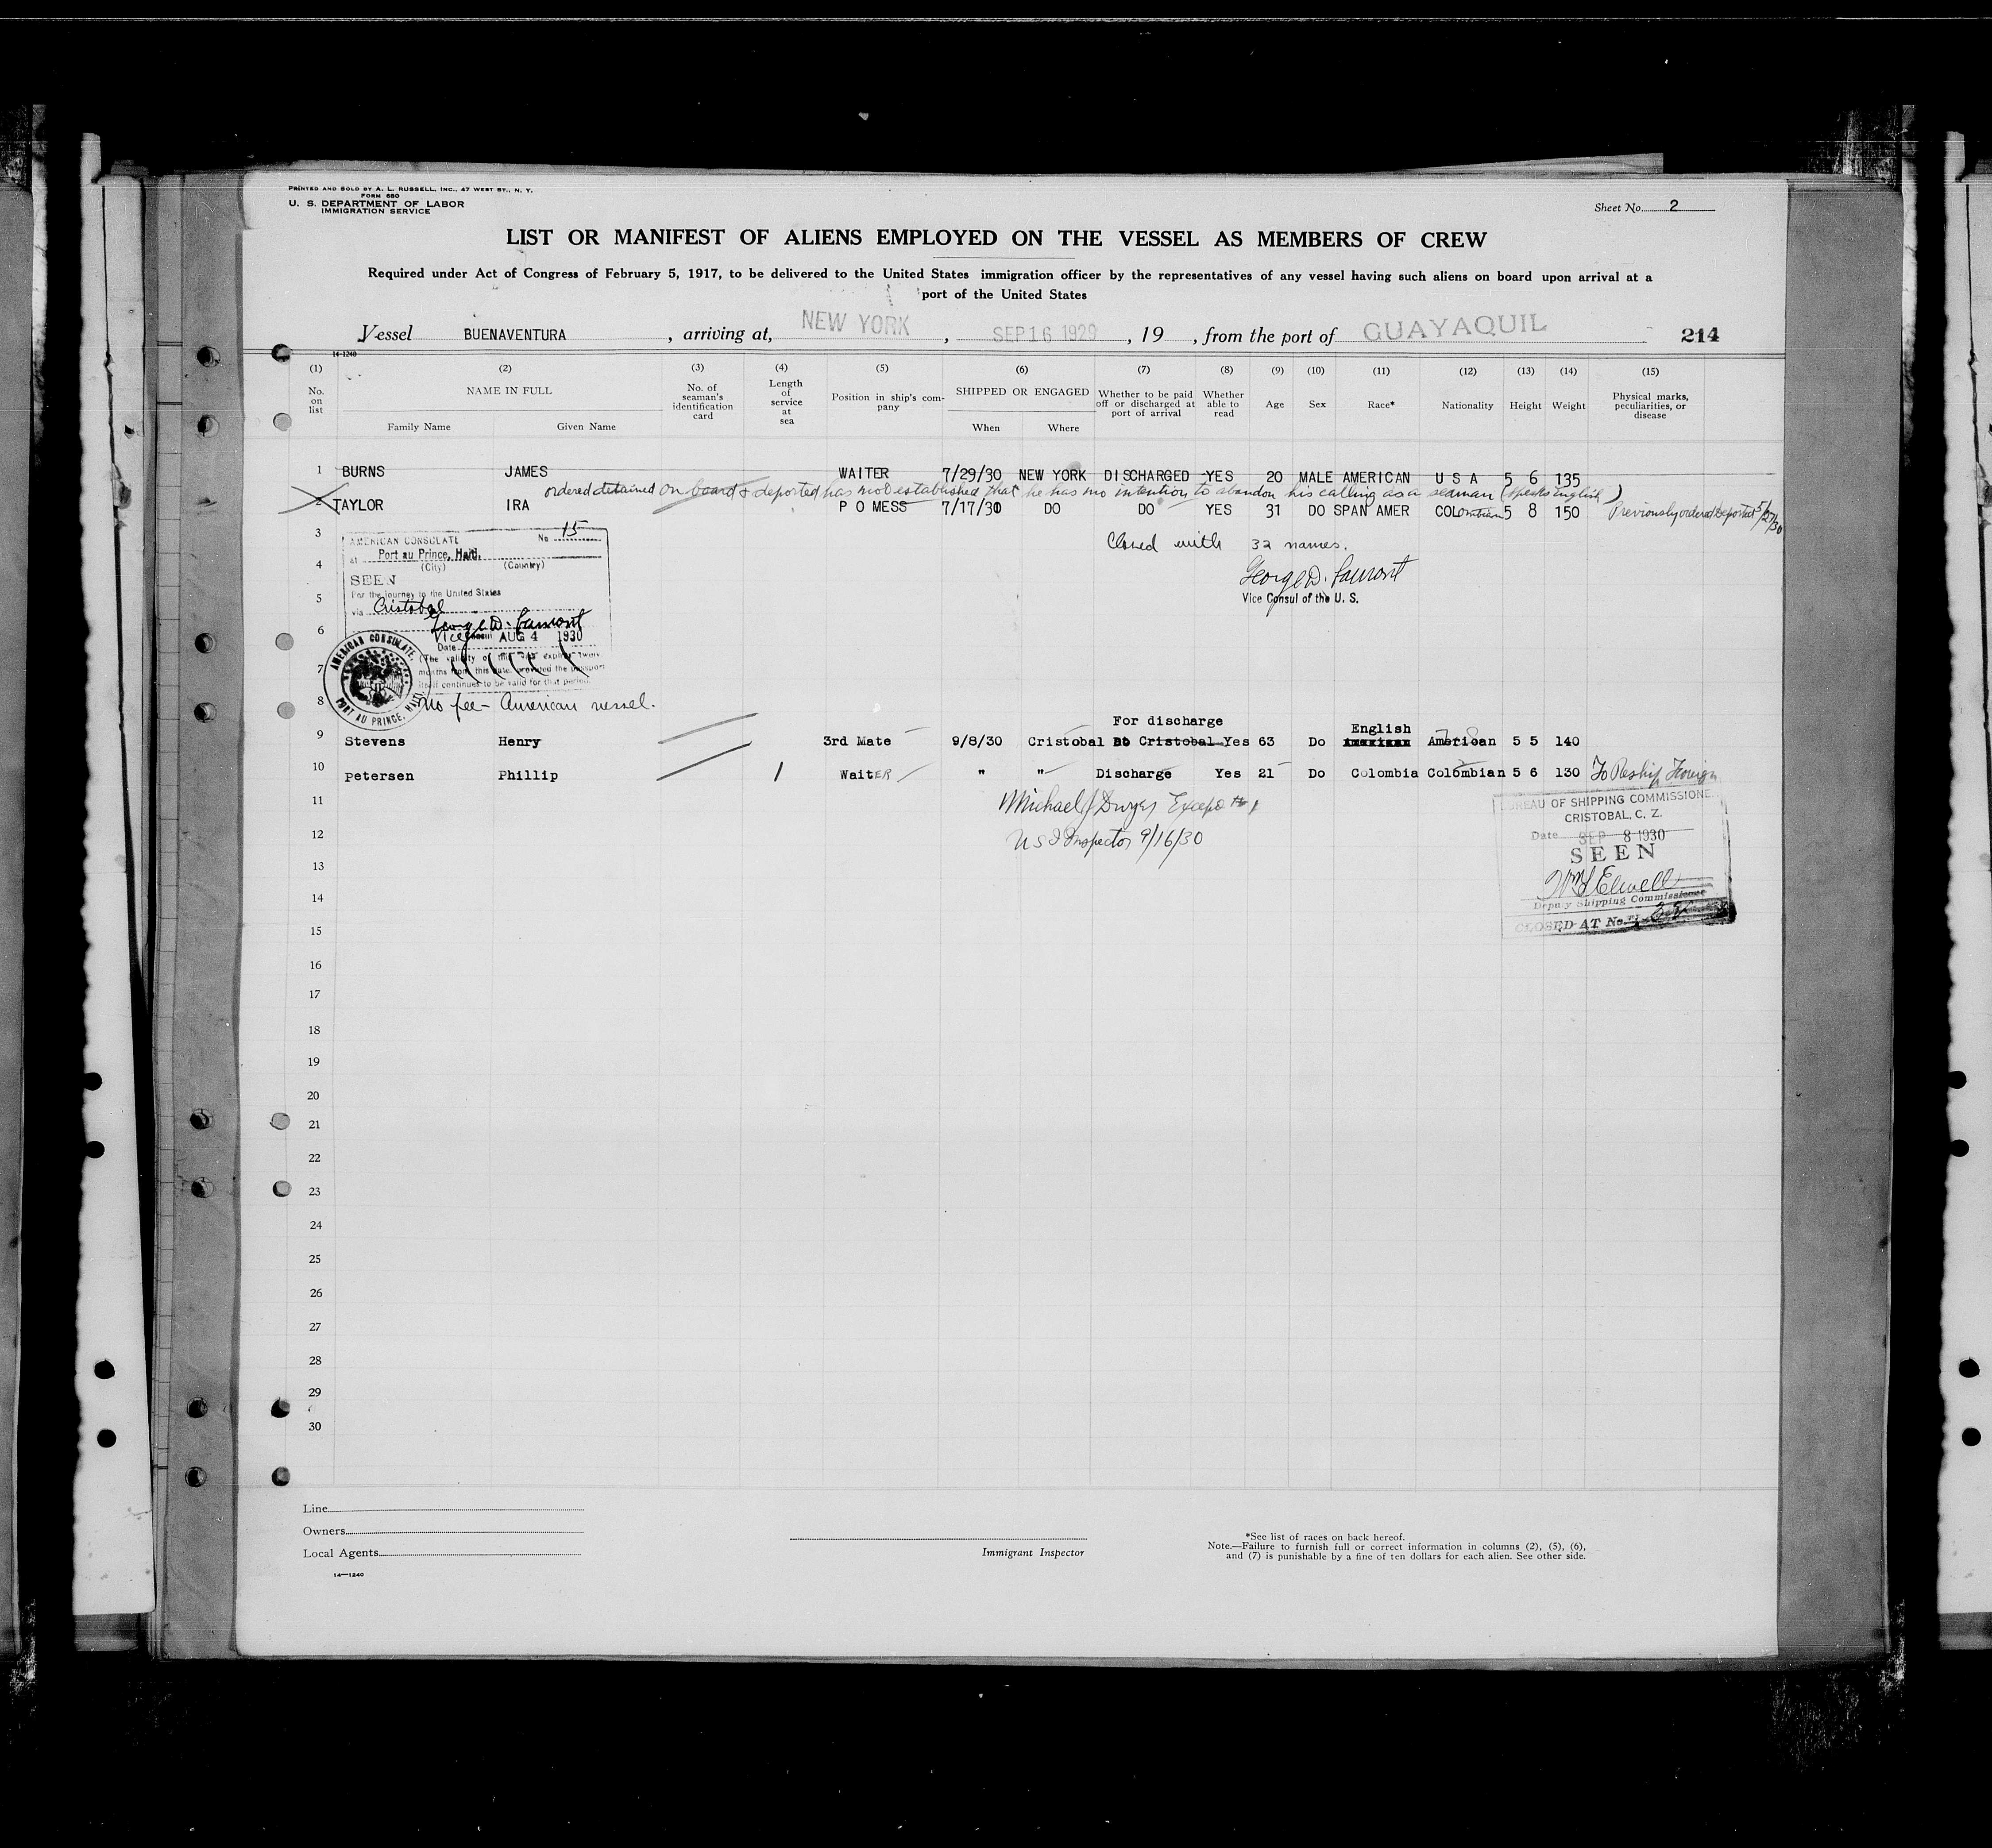 PRINTED AND SOLD BY A. L. RUSSELL, INC., 47 WEST ST., N. Y.
FORM 680
U. S. DEPARTMENT OF LABOR
IMMIGRATION SERVICE
Sheet No. 2
LIST OR MANIFEST OF ALIENS EMPLOYED ON THE VESSEL AS MEMBERS OF CREW
Required under Act of Congress of February 5, 1917, to be delivered to the United States immigration officer by the representatives of any vessel having such aliens on board upon arrival at a
port of the United States
Vessel BUENAVENTURA , arriving at, NEW YORK , SEP 16 1929 , 19 , from the port of GUAYAQUIL 214
14-1240
(1) (2) (3) (4) (5) (6) (7) (8) (9) (10) (11) (12) (13) (14) (15)
No. on list NAME IN FULL Family Name Given Name No. of seaman's identification card Length of service at sea Position in ship's company SHIPPED OR ENGAGED When Where Whether to be paid off or discharged at port of arrival Whether able to read Age Sex Race* Nationality Height Weight Physical marks, peculiarities, or disease
1 BURNS JAMES WAITER 7/29/30 NEW YORK DISCHARGED YES 20 MALE AMERICAN U S A 5 6 135
ordered detained on board & deported has not established that he has no intention to abandon his calling as a seaman (speaks English)
2 TAYLOR IRA P O MESS 7/17/30 DO DO YES 31 DO SPAN AMER COLombian 5 8 150 Previously ordered deported 5/27/30
3
4
5
6
7
8
AMERICAN CONSULATE No 15
at Port au Prince, Haiti.
(City) (Country)
SEEN
For the journey to the United States
via Cristobal
George D. Lamont
Vice Consul AUG 4 1930
Date
(The validity of this visa expires twelve
months from this date, provided the passport
itself continues to be valid for that period.
AMERICAN CONSULATE, PORT AU PRINCE, HAITI
No fee - American vessel.
Closed with 32 names.
George D. Lamont
Vice Consul of the U. S.
For discharge
English
9 Stevens Henry 3rd Mate 9/8/30 Cristobal At Cristobal Yes 63 Do American American 5 5 140
10 petersen Phillip 1 WaitER " " Discharge Yes 21 Do Colombia Colombian 5 6 130 To Reship Foreign
11
12
13
14
15
Michael J Dwyer Except # 1
U S I Inspector 9/16/30
BUREAU OF SHIPPING COMMISSIONE
CRISTOBAL, C. Z.
Date SEP 8 1930
SEEN
Wm S Elwell
Deputy Shipping Commissioner
CLOSED AT No.
16
17
18
19
20
21
22
23
24
25
26
27
28
29
30
Line
Owners
Local Agents
14—1240
Immigrant Inspector
*See list of races on back hereof.
Note.—Failure to furnish full or correct information in columns (2), (5), (6),
and (7) is punishable by a fine of ten dollars for each alien. See other side.